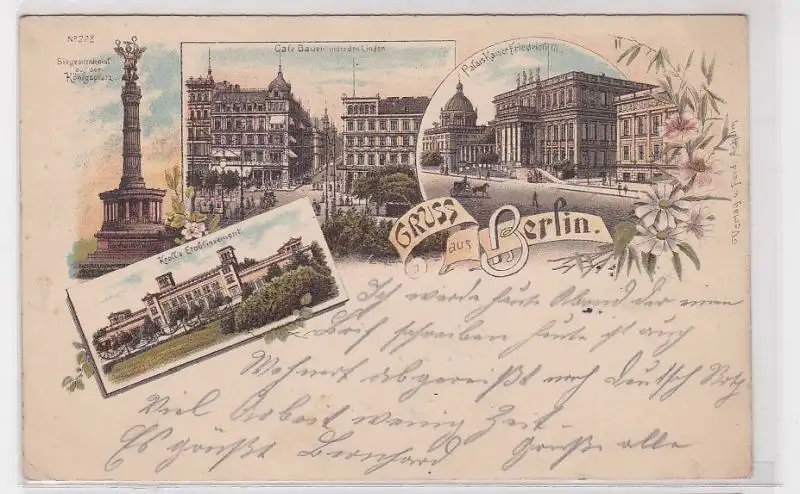 No 272
Siegesdenkmal
auf der
Königsplatz.
Café Bauer unter den Linden
Palais Kaiser Friedrich III.
Kroll's Etablissement
GRUSS
aus
Berlin.
Verlag v. Ferd.
Ich werde heute Abend der einen
Brif schreiben heute ist auch
abgereißt nach Deutsch
Viel Arbeit wenig Zeit.
Es grüßt Bernhard Grüße alle